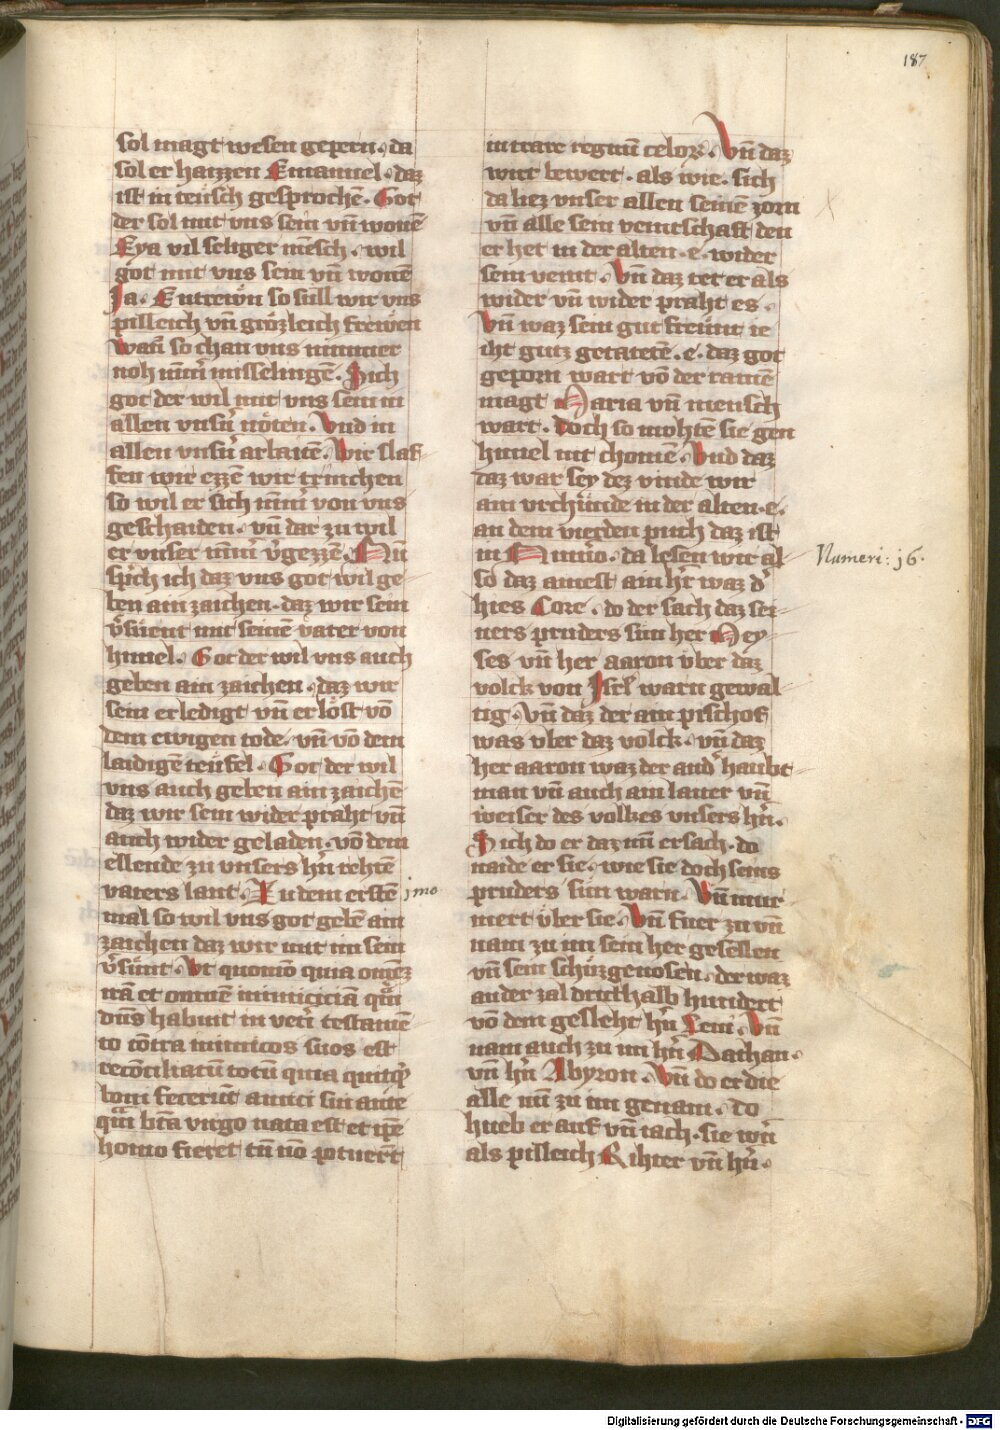 187
sol magt wesen gepern. da
sol er haizzen Emanuel. daz
ist in teüsch gesprochē. Got
der sol mit vns sein vñ wonē
Eya vil seliger mēsch. wil
got mit vns sein vñ wonē
Ja. Entrewn so süll wir vns
pilleich vñ grözleich frewen
wañ so chan vns nimmer
noh nim̄ misselingē. Sich
got der wil mit vns sein in
allen vnsn̄ nöten. Vnd in
allen vnsn̄ arbaitē. Wir slaf
fen wir ezzē wir trinchen
so wil er sich nim̄ von vns
geschaiden. vñ dar zu wil
er vnser nim̄ v̄gezzē. Nu
sprich ich daz vns got wil ge
ben ain zaichen. daz wir sein
v̄süent mit seinē vater von
himel. Got der wil vns auch
geben ain zaichen. daz wir
sein erledigt vñ erlöst vō
dem ewigen tode. vñ vō dem
laidigē teüfel. Got der wil
vns auch geben ain zaichē
daz wir sein wider praht vñ
auch wider geladen. vō dem
ellende zu vnsers hn̄ rehtē
vaters lant. Zu dem erstē jmo
mal so wil vns got gebē ain
zaichen daz wir mit im sein
v̄sünt. Vt quoniō quia omēz
irā et omnē inimiciciā quā
dn̄s habuit in vetī testamē
to cōtra inimicos suos est
recōciliatū totū quia quitqd
boni fecerūt amici sui ante
qm̄ bt̄a virgo nata est et ip̄e
homo fieret tn̄ nō potuerūt
intrare regnū celoꝝ. Vñ daz
wirt bewert. als wie. sich
da liez vnser allen seinē zorn
vñ alle sein veintschaft den
er het in der alten. e. wider
sein veint. Vñ daz tet er als
wider vñ wider praht es.
Vñ waz sein gut freünt ie
iht gutz getatetē. e. daz got
geporn wart vō der rainē
magt Maria vñ mensch
wart. Doch so mohtē sie gen
himel nit chomē. Vnd daz
daz war sey dez vinde wir
ain vrchünde in der alten. e.
an dem vierden puch daz ist
in Numīo. da lesen wir al Numeri: 16.
so daz ainest ain hr̄ waz d̄
hies Core. do der sach daz sei
ners pruders sün her Moy
ses vñ her aaron vber daz
volck von Isrl̄ warn gewal
tig. Vñ daz der ain pischof
was vber daz volck. vñ daz
her aaron waz der and̄ haubt
man vñ auch ain laiter vñ
weiser des volkes vnsers hn̄.
Sich do er daz nū ersach. do
naide er sie. wie sie doch seins
pruders sün warn. Vñ mur
mert vber sie. Vñ fuer zu vñ
nam zu im sein her gesellen
vñ sein schiltzgenosen. der waz
ander zal dritthalb hundert
vō dem gesleht hn̄ Leui. Vñ
nam auch zu im hn̄ Dathan.
vñ hn̄ Abyron. Vñ do er die
alle nū zu im genam. do
hueb er auf vñ iach. sie wn̄
als pilleich Rihter vñ hn̄.
Digitalisierung gefördert durch die Deutsche Forschungsgemeinschaft - DFG